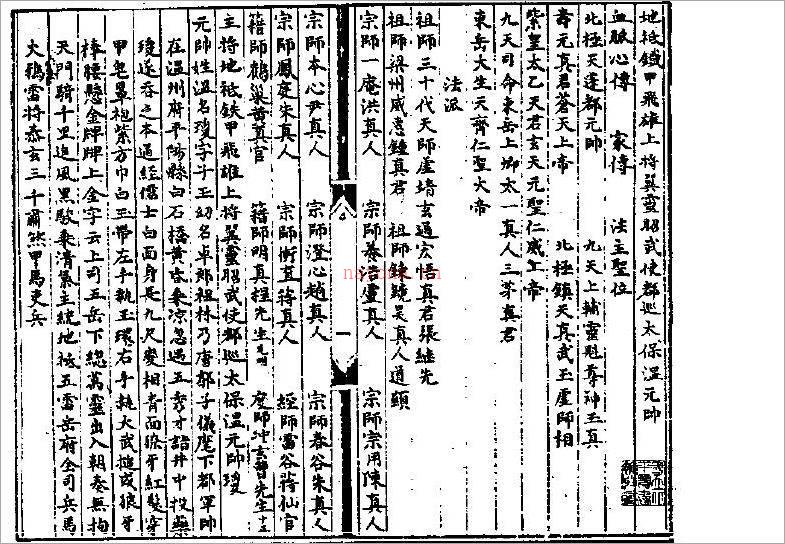 地祇鐵甲飛雄上將翼靈昭武使都巡太保溫元帥
血脈心傳 家傳 法主聖位
北極天蓬都元帥 九天上輔靈尊神王真
壽元真君蒼天上帝 北極鎮天真武玉虛師相
紫皇太乙天君玄天元聖仁威上帝
九天司命東岳上卿太一真人三茅真君
東岳大生天齊仁聖大帝
法派
祖師三十代天師虛靖玄通宏悟真君張繼先
祖師梁州威惠鍾真君 祖師鍊鏡吳真人道顯
宗師一庵洪真人 宗師養浩盧真人 宗師宗用陳真人
八
一
宗師本心尹真人 宗師澄心趙真人 宗師春谷朱真人
宗師鳳朱真人 宗師衝真蔣真人 經師雷谷蔣仙官
籍師鶴巢黃真官 籍師明真先生 度師冲玄曾先生
主將地祇鐵甲飛雄上將翼靈昭武使都巡太保溫元帥瓊
元帥姓溫名瓊字子玉幼名卓郎祖林乃唐郭子儀麾下都軍帥
在溫州府平陽縣白石橋黃昏乘涼忽遇五秀才詣井中投藥
瓊遂吞之本通經儒士白面身長九尺變相青面獠牙紅髮穿
甲皂羅袍紫方巾白玉帶左手執玉環右手執大武搥或狼牙
棒腰懸金牌牌上金字云上司五岳下總萬靈出入朝奏無拘
天門騎千里追風黑駿乘清纂主統地祇五雷岳府全司兵馬
大鵶雷將泰玄三千肅然甲馬吏兵
natwb.com